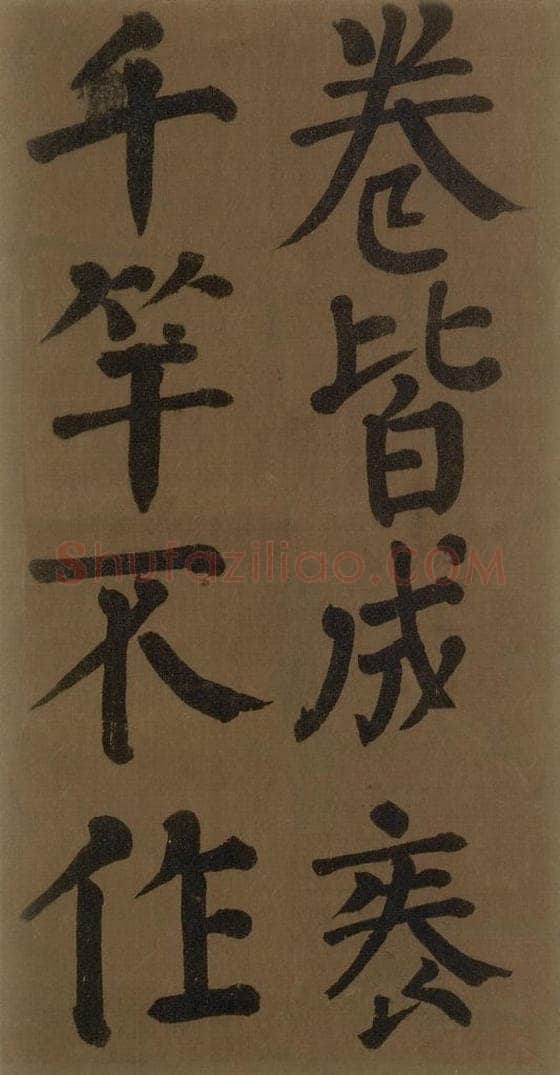 卷皆成袠
千竿不作
Shufaziliao.COM